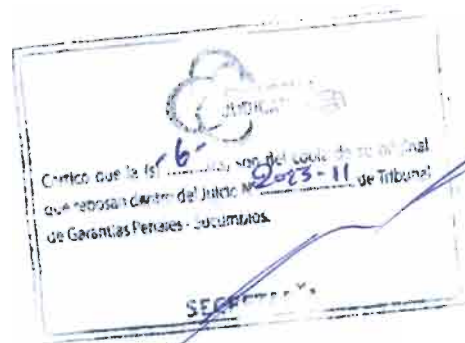 JUDICATURA
Certifico que la (s) -6- son fiel copia de su original
que reposan dentro del Juicio Nº 2023-11 de Tribunal
de Garantías Penales - Sucumbíos.
SECRETARIA